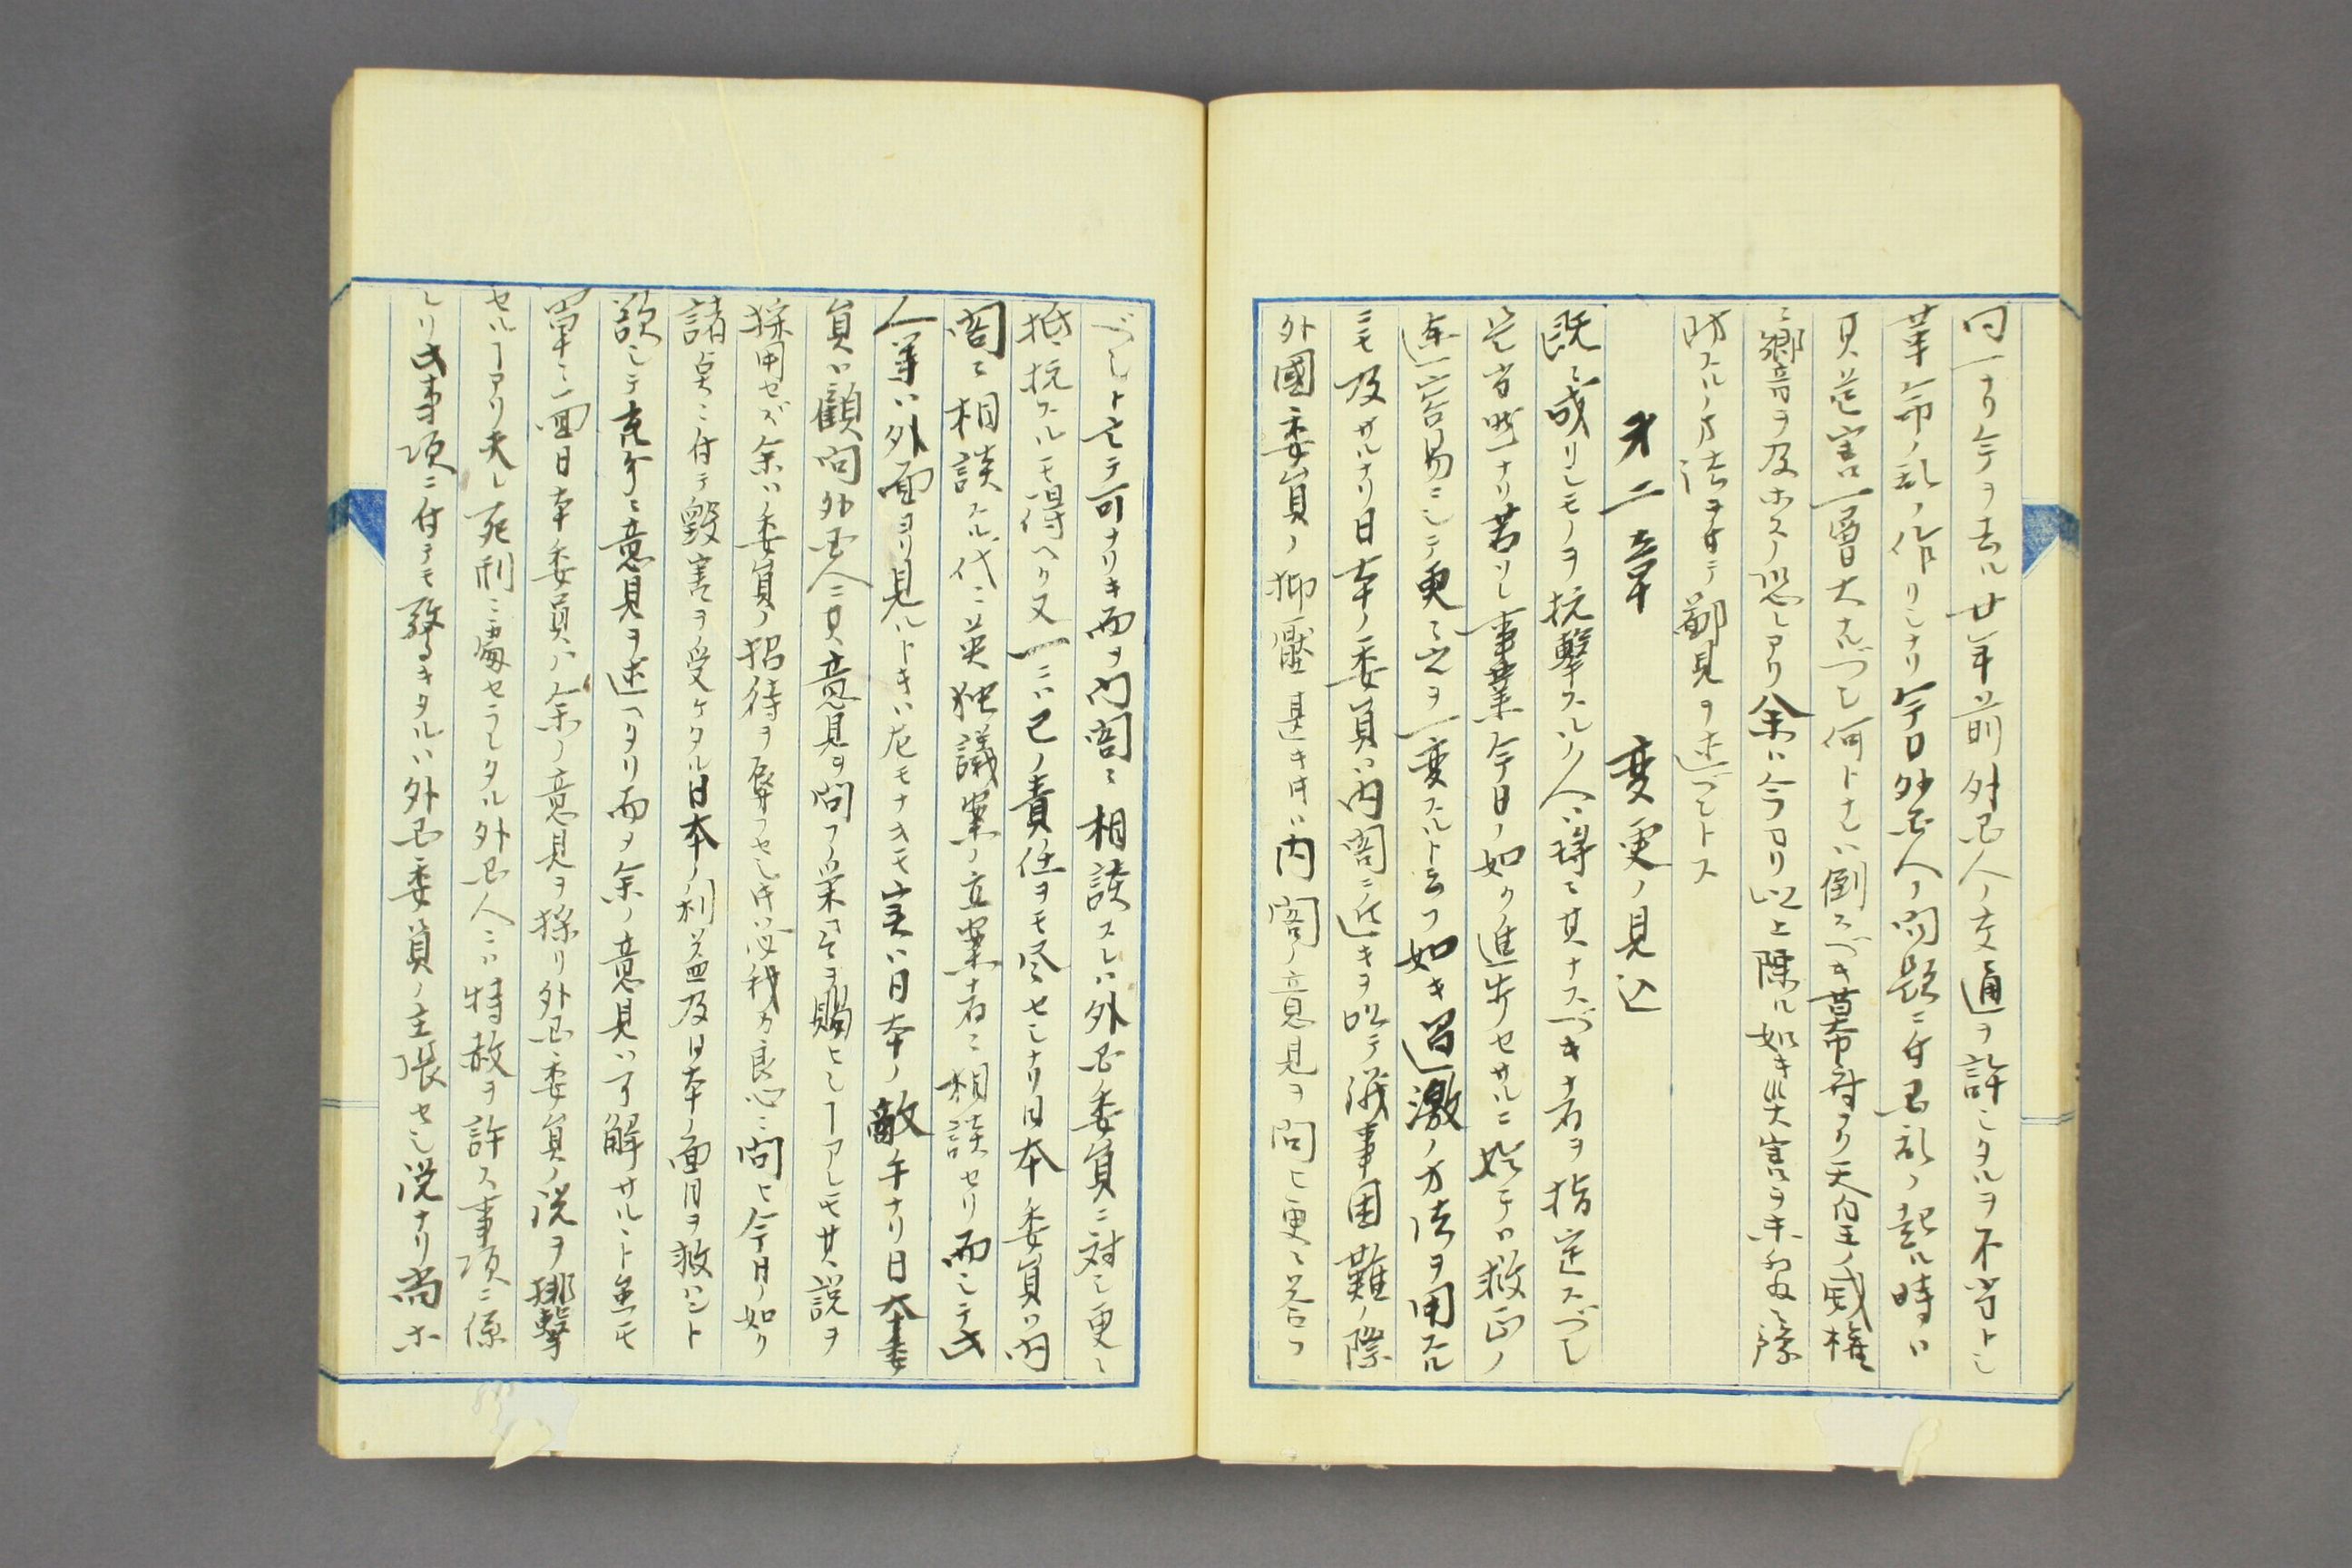 同一ナリ今ヲ去ル廿年前外国人ノ交通ヲ許シタルヲ不当トシ
革命ノ乱ノ作リシナリ今日外国人ノ問題ニ付国乱ノ起ル時ハ
其危害一層大ナルヘシ何トナレハ倒スベキ幕府ナク天皇ノ威権
ニ響音ヲ及ホスノ恐レアリ余ハ今日ヨリ以上陳ル如キ災害ヲ未発ニ豫
防スルノ方法ヲ付テ鄙見ヲ述ベントス
第二章 変更ノ見込
既ニ成リシモノヲ抗撃スル人ハ得テ其ナスベキ者ヲ指定スベシ
是レ当然ナリ若シ事業今日ノ如ク進歩セサルニ於テハ救正ノ
途容易ニシテ更ニ之ヲ一変スルト云フ如キ過激ノ方法ヲ用スル
ニモ及サルナリ日本ノ委員ハ内閣ニ近キヲ以テ議事困難ノ際
外國委員ノ抑壓甚キ時ハ内閣ノ意見ヲ問ヒ更ニ答フ
ベシト云テ可ナリキ而ヲ内閣ニ相談スレハ外国委員ニ対シ更ニ
抵抗スルモ得ヘク又一ニハ己ノ責任ヲモ尽セシナリ日本委員ハ内
閣ニ相談スル代ニ英独議案ノ立案者ニ相談セリ而シテ此
人等ハ外面ヨリ見ルトキハ尤モナルモ実ハ日本ノ敵手ナリ日本委
員ハ顧問外国人ニ其意見ヲ問フノ栄ヲ賜ヒシヿアレモ其説ヲ
採用セズ余ハノ委員ノ招待ヲ辱フセシ時ハ必我カ良心ニ問ヒ今日ノ如ク
諸点ニ付テ毀害ヲ受ケタル日本ノ利益及日本ノ面目ヲ救ハント
欲シテ意見ヲ述ヘタリ而ヲ余ノ意見ハ了解サルヽト雖モ
単ニ一回日本委員ハ余ノ意見ヲ採リ外国委員ノ説ヲ排撃
セルヿアリ夫レ死刑ニ處セラレタル外国人ニハ特赦ヲ許ス事項ニ係
レリ此事項ニ付テモ驚キタルハ外国委員ノ主張セシ説ナリ尚ホ